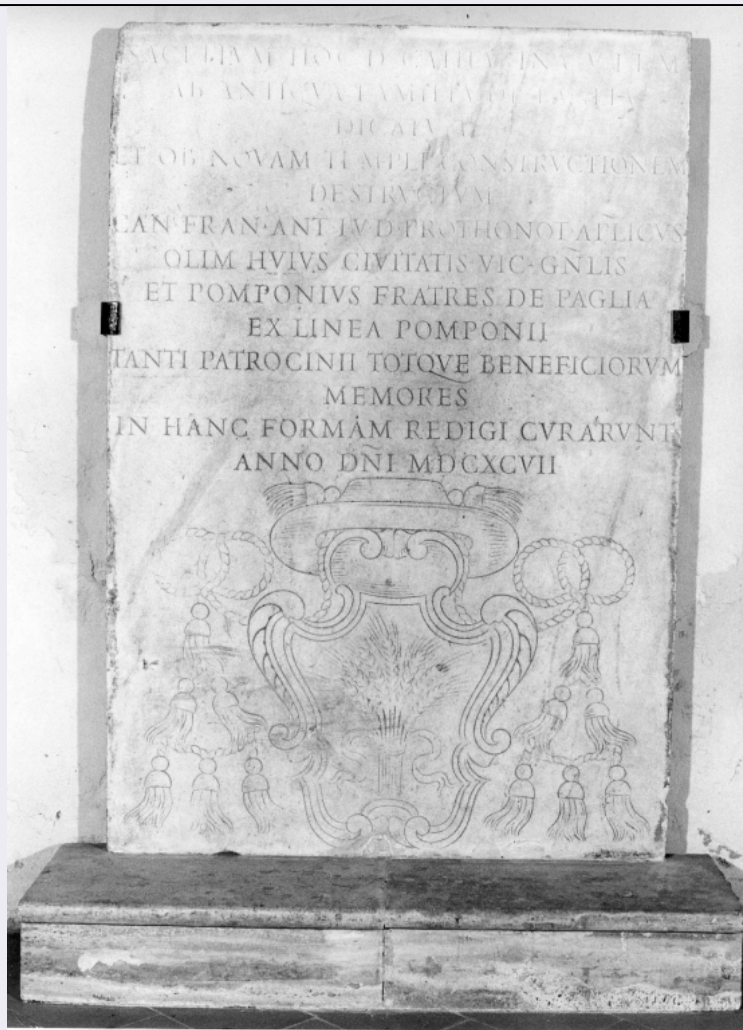 SACELLVM HOC D
AB ANTIQVA FAMILIA DE PAGLIA
DICATVM
ET OB NOVAM TEMPLI CONSTRVCTIONEM
DESTRVCTVM
CAN·FRAN·ANT·I·V·D·PROTHONOT·APLICVS
OLIM HVIVS CIVITATIS VIC·GÑLIS
ET POMPONIVS FRATRES DE PAGLIA
EX LINEA POMPONII
TANTI PATROCINII TOTQVE BENEFICIORVM
MEMORES
IN HANC FORMAM REDIGI CVRARVNT
ANNO DÑI MDCXCVII